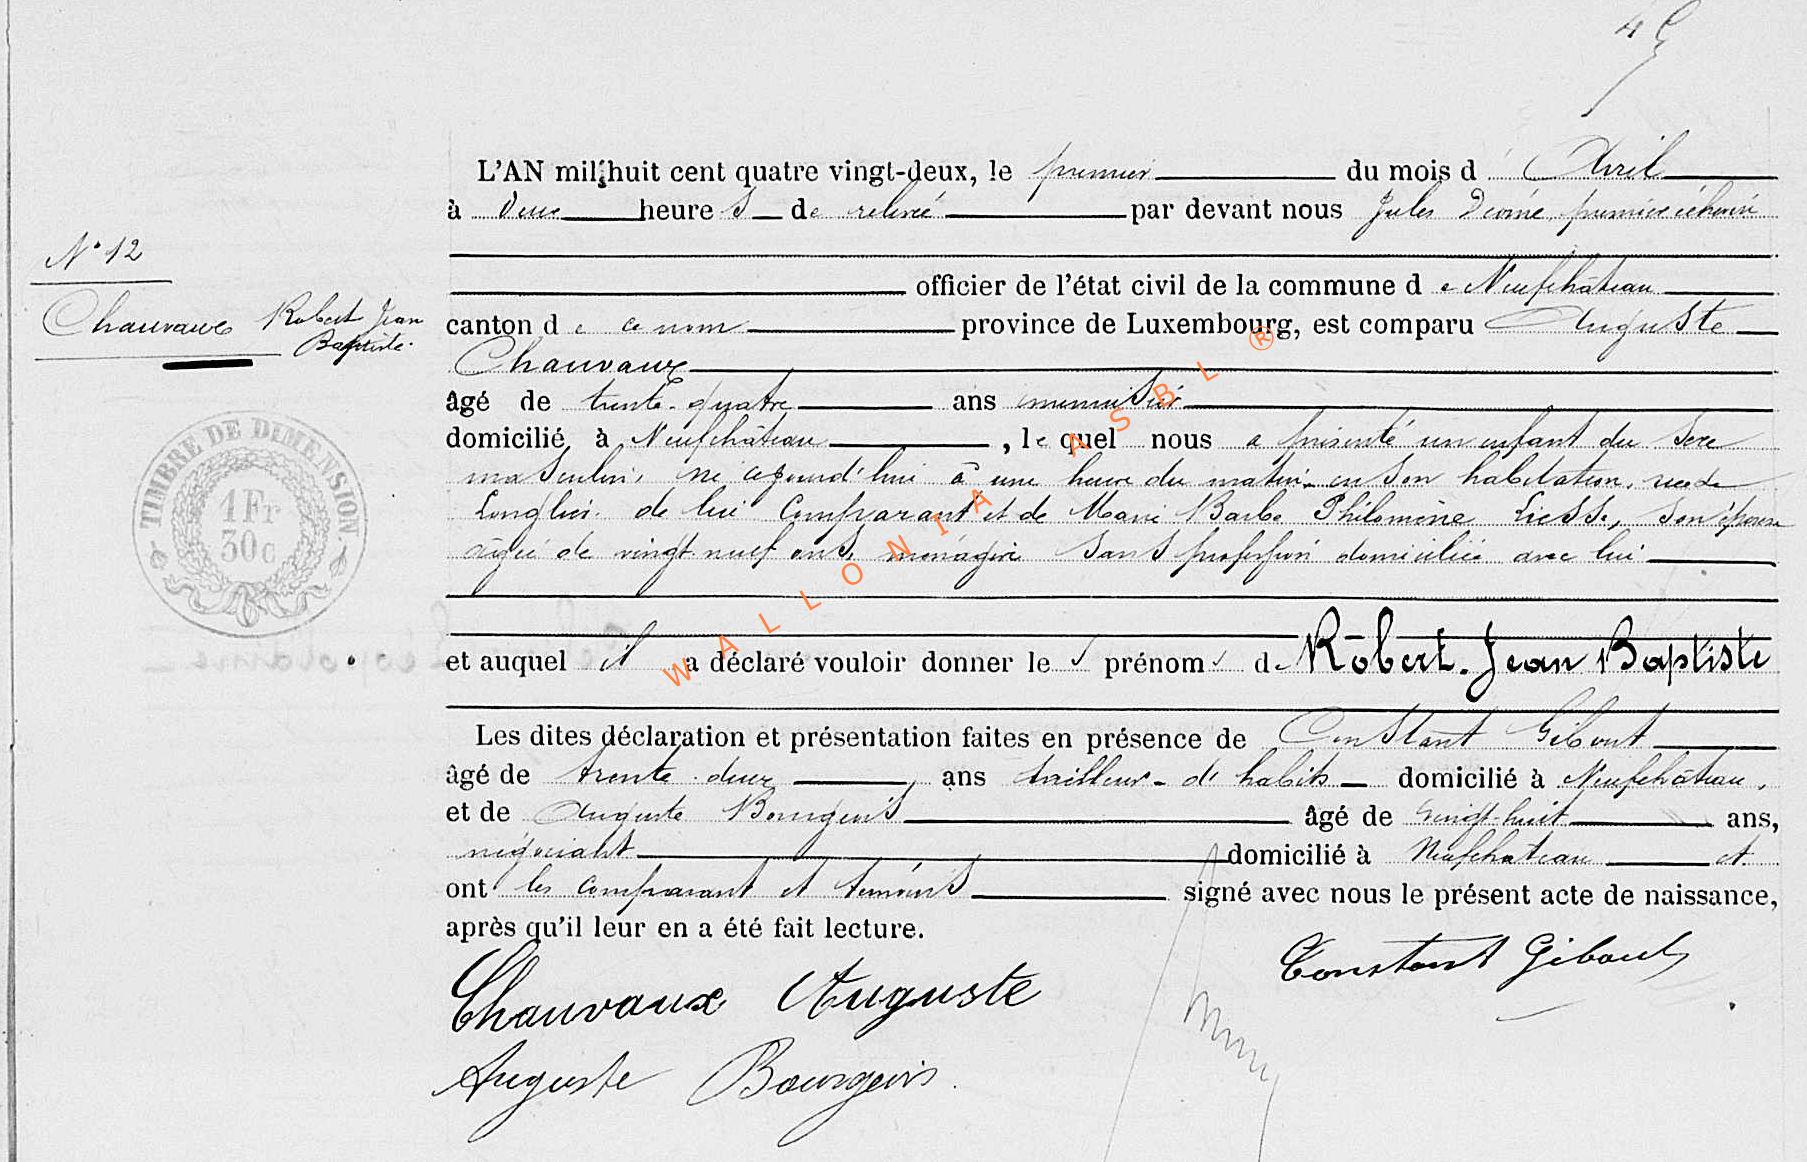 L'AN mil huit cent quatre vingt-deux, le premier du mois d'Avril
à deux heures de relevée par devant nous Jules premier échevin
N° 12
officier de l'état civil de la commune de Neufchâteau
Chauvaux Robert Jean
Baptiste.
canton de ce nom province de Luxembourg, est comparu Auguste
Chauvaux
âgé de trente-quatre ans menuisier
domicilié à Neufchâteau, lequel nous a présenté un enfant du sexe
masculin, né cejourd'hui à une heure du matin en son habitation, rue de
Longlier de lui Comparant et de Marie Barbe Philomène Liesse, son épouse
âgée de vingt neuf ans, ménagère sans profession domiciliée avec lui
TIMBRE DE DIMENSION.
1 Fr
30c
et auquel il a déclaré vouloir donner les prénoms de Robert-Jean Baptiste
Les dites déclaration et présentation faites en présence de Constant Gibout
âgé de trente-deux ans tailleur-d'habits domicilié à Neufchâteau,
et de Auguste Bourgeois âgé de vingt-huit ans,
négociant domicilié à Neufchateau et
ont les comparant et témoins signé avec nous le présent acte de naissance,
après qu'il leur en a été fait lecture.
Constant Gibout
Chauvaux Auguste
Auguste Bourgeois.
WALLONIA ASBL ®